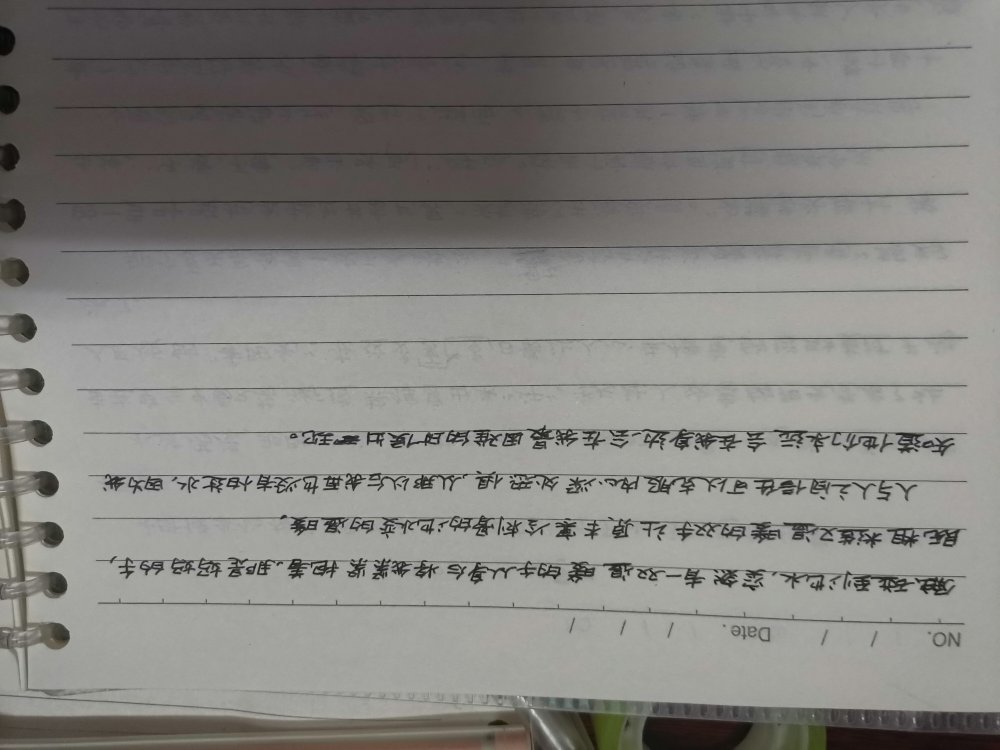 NO. / / Date. / / /
触碰到池水,突然有一双温暖的手从身后将我紧紧抱着.那是妈妈的手,
既粗糙又温暖的双手让原本寒冷刺骨的池水变的温暖。
人与人之间信任可以克服内心深处恐惧,从那以后我再也没有怕过水,因为我
知道他们永远会在我身边,会在我最困难的时候出现。